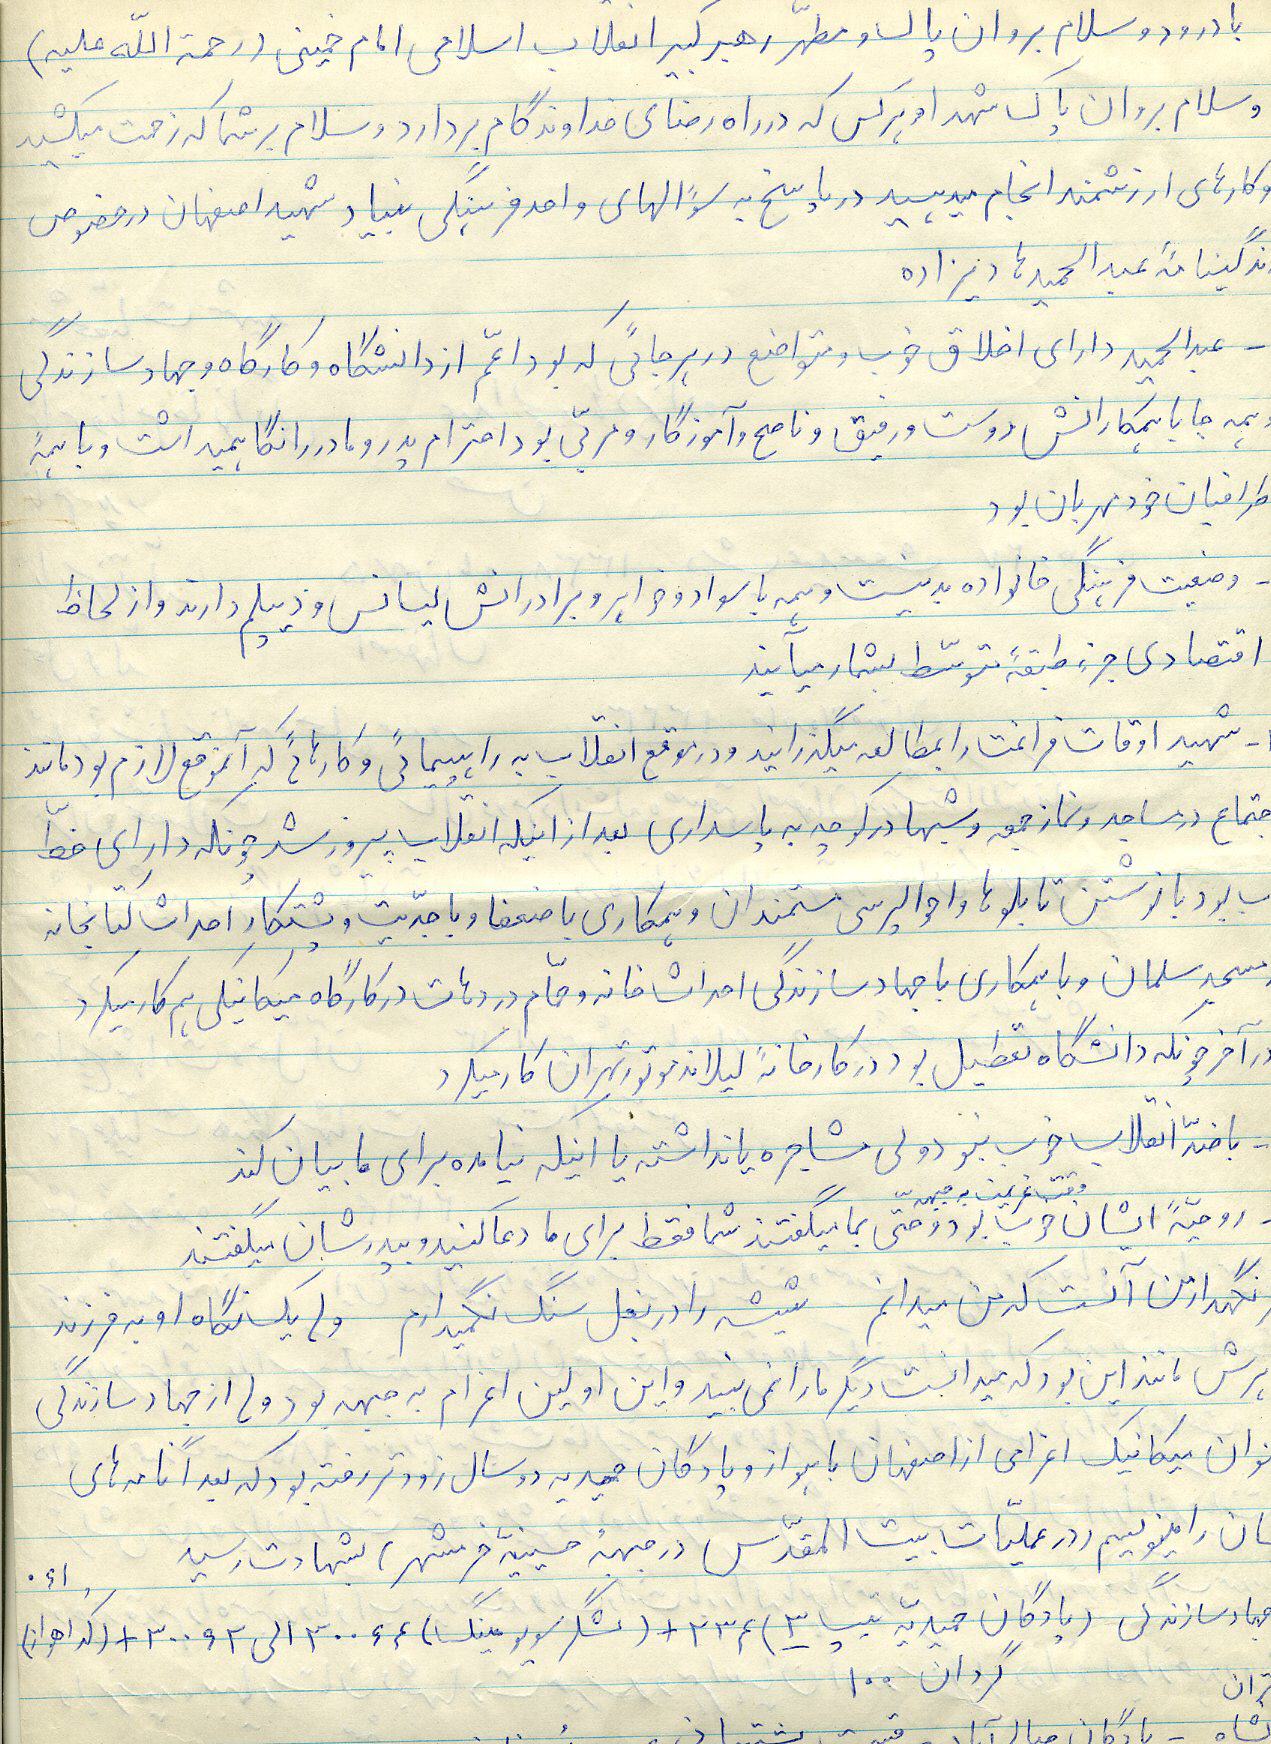 با درود و سلام بروان پاک و مطهّر رهبر کبیر انقلاب اسلامی امام خمینی (رحمة اللّه علیه)
و سلام بروان پاک شهدا و هرکس که در راه رضای خداوند گام بردارد و سلام بر شما که زحمت میکشید
و کارهای ارزشمند انجام میدهید در پاسخ به سؤالهای واحد فرهنگی بنیاد شهید اصفهان در خصوص
زندگینامهٔ عبدالحمید هادیزاده
- عبدالحمید دارای اخلاق خوب و متواضع در هر جائی که بود اعمّ از دانشگاه و کارگاه و جهاد سازندگی
و همه جا با همکارانش دوست و رفیق و ناصح و آموزگار و مربّی بود احترام پدر و مادر را نگاهمیداشت و با همهٔ
طرافیان خود مهربان بود
- وضعیت فرهنگی خانواده بد نیست و همه با سواد و خواهر و برادرانش لیسانس و دیپلم دارند و از لحاظ
اقتصادی جزء طبقهٔ متوسّط بشمار میآیند
- شهید اوقات فراغت را بمطالعه میگذرانید و در موقع انقلاب به راهپیمائی و کارهائی که آنموقع لازم بود مانند
جتماع در مساجد و نماز جمعه و شبها در کوچه به پاسداری بعد از اینکه انقلاب پیروز شد چونکه دارای خطّ
ب بود با نوشتن تابلوها و احوالپرسی مستمندان و همکاری با ضعفا و با جدّیت و پشتکار احداث کتابخانه
مسجد سلمان و با همکاری با جهاد سازندگی احداث خانه و حمّام در دهات در کارگاه میکانیکی هم کار میکرد
در آخر چونکه دانشگاه تعطیل بود در کارخانهٔ لیلاند موتور تهران کار میکرد
- با ضدّ انقلاب خوب نبود ولی مشاجره یا نداشته یا اینکه نیامده برای ما بیان کند
وقت عزیمت به جبهه
- روحیّهٔ ایشان خوب بود و حتّی بما میگفتند شما فقط برای ما دعا کنید و بپدرشان میگفتند
نگهدار من آنست که من میدانم شیشه را در بغل سنگ نگهمیدارم ولی یک نگاه او به فرزند
پسرش مانند این بود که میدانست دیگر ما را نمی بیند و این اولین اعزام به جبهه بود ولی از جهاد سازندگی
نوان میکانیک اعزامی از اصفهان باهواز و پادگان حمیدیه دو سال زودتر رفته بود که بعداً نامه های
شان را مینویسیم (در عملیّات بیت المقدّس در جبههٔ حسینیّهٔ خرمشهر) بشهادت رسید
۰۶۱
جهاد سازندگی (پادگان حمیدیّه تیپ ۳) ۲۳۴+ ۳۰۰۶۴ الی ۳۰۰۹۲+ (کد اهواز)
گردان ۱۰۰